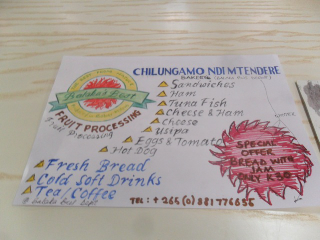 CHILUNGAMO NDI MTENDERE
FRUIT PROCESSING
Sandwiches
Ham
Tuna Fish
Cheese & Ham
Cheese
Usipa
Eggs & Tomato
Hot Dog
SPECIAL
OFFER
BREAD WITH
JAM
ONLY K50
Fresh Bread
Cold Soft Drinks
Tea/Coffee
TEL: +265(0)881776655